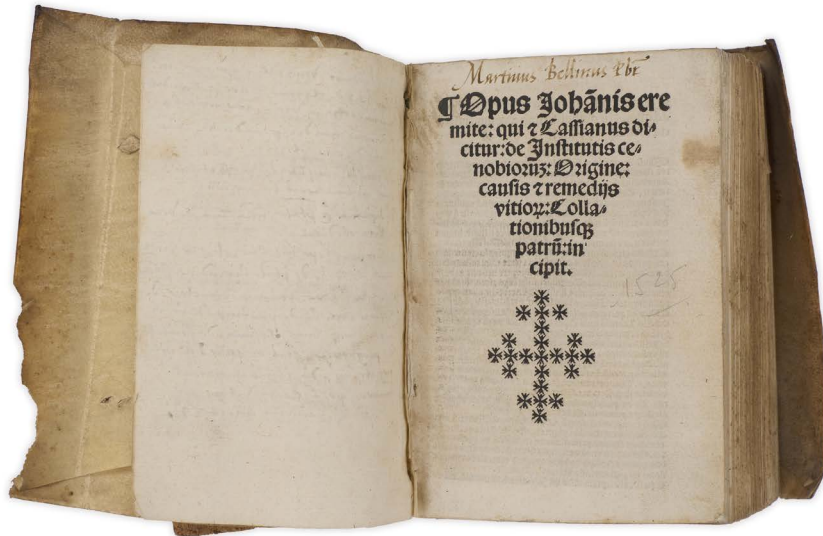 Martinus Bellinus Pbr
¶Opus Johānis ere
mite: qui ⁊ Cassianus di⸗
citur: de Institutis ce⸗
nobioruꝫ: Origine:
causis ⁊ remedijs
vitioꝝ: Colla⸗
tionibusqꝫ
patrū: in
cipit.
1525